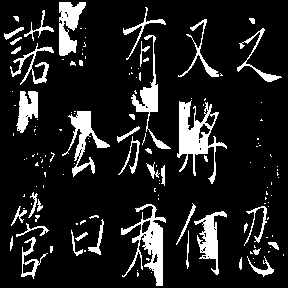 之忍
又將何
有於君
公曰
諾管